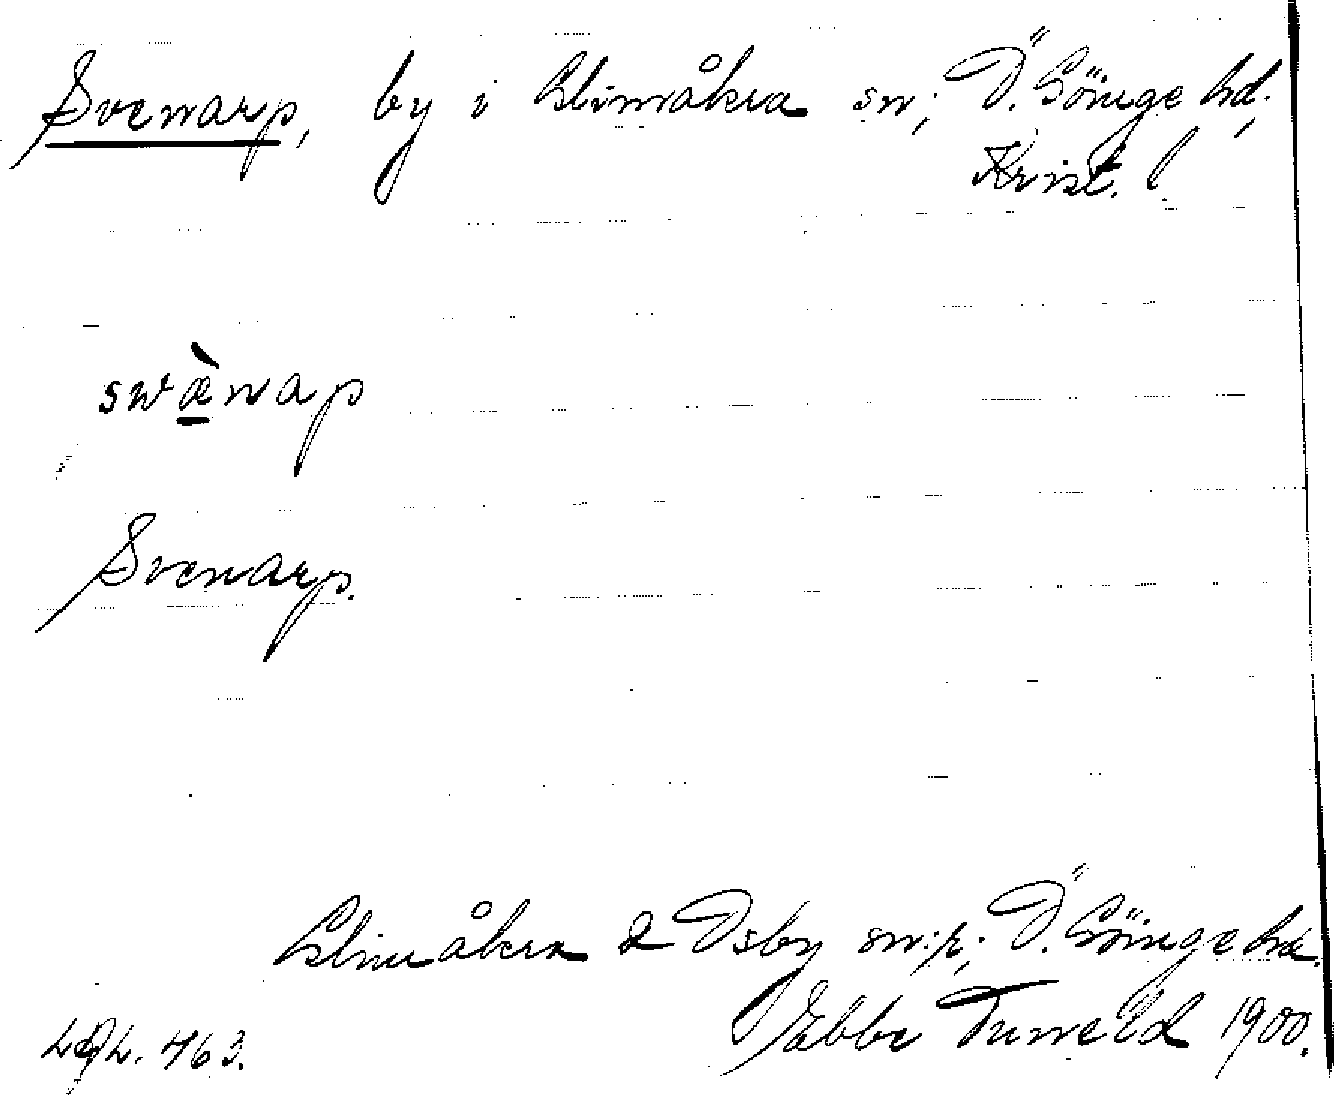 Svenarp, by i Glimåkra sn; Ö. Göinge hd,
Krist. l
svæ̀nap
Svenarp.
Glimåkra & Osby sn:r; Ö. Göinge hd.
Ebbe Tuneld 1900.
463.